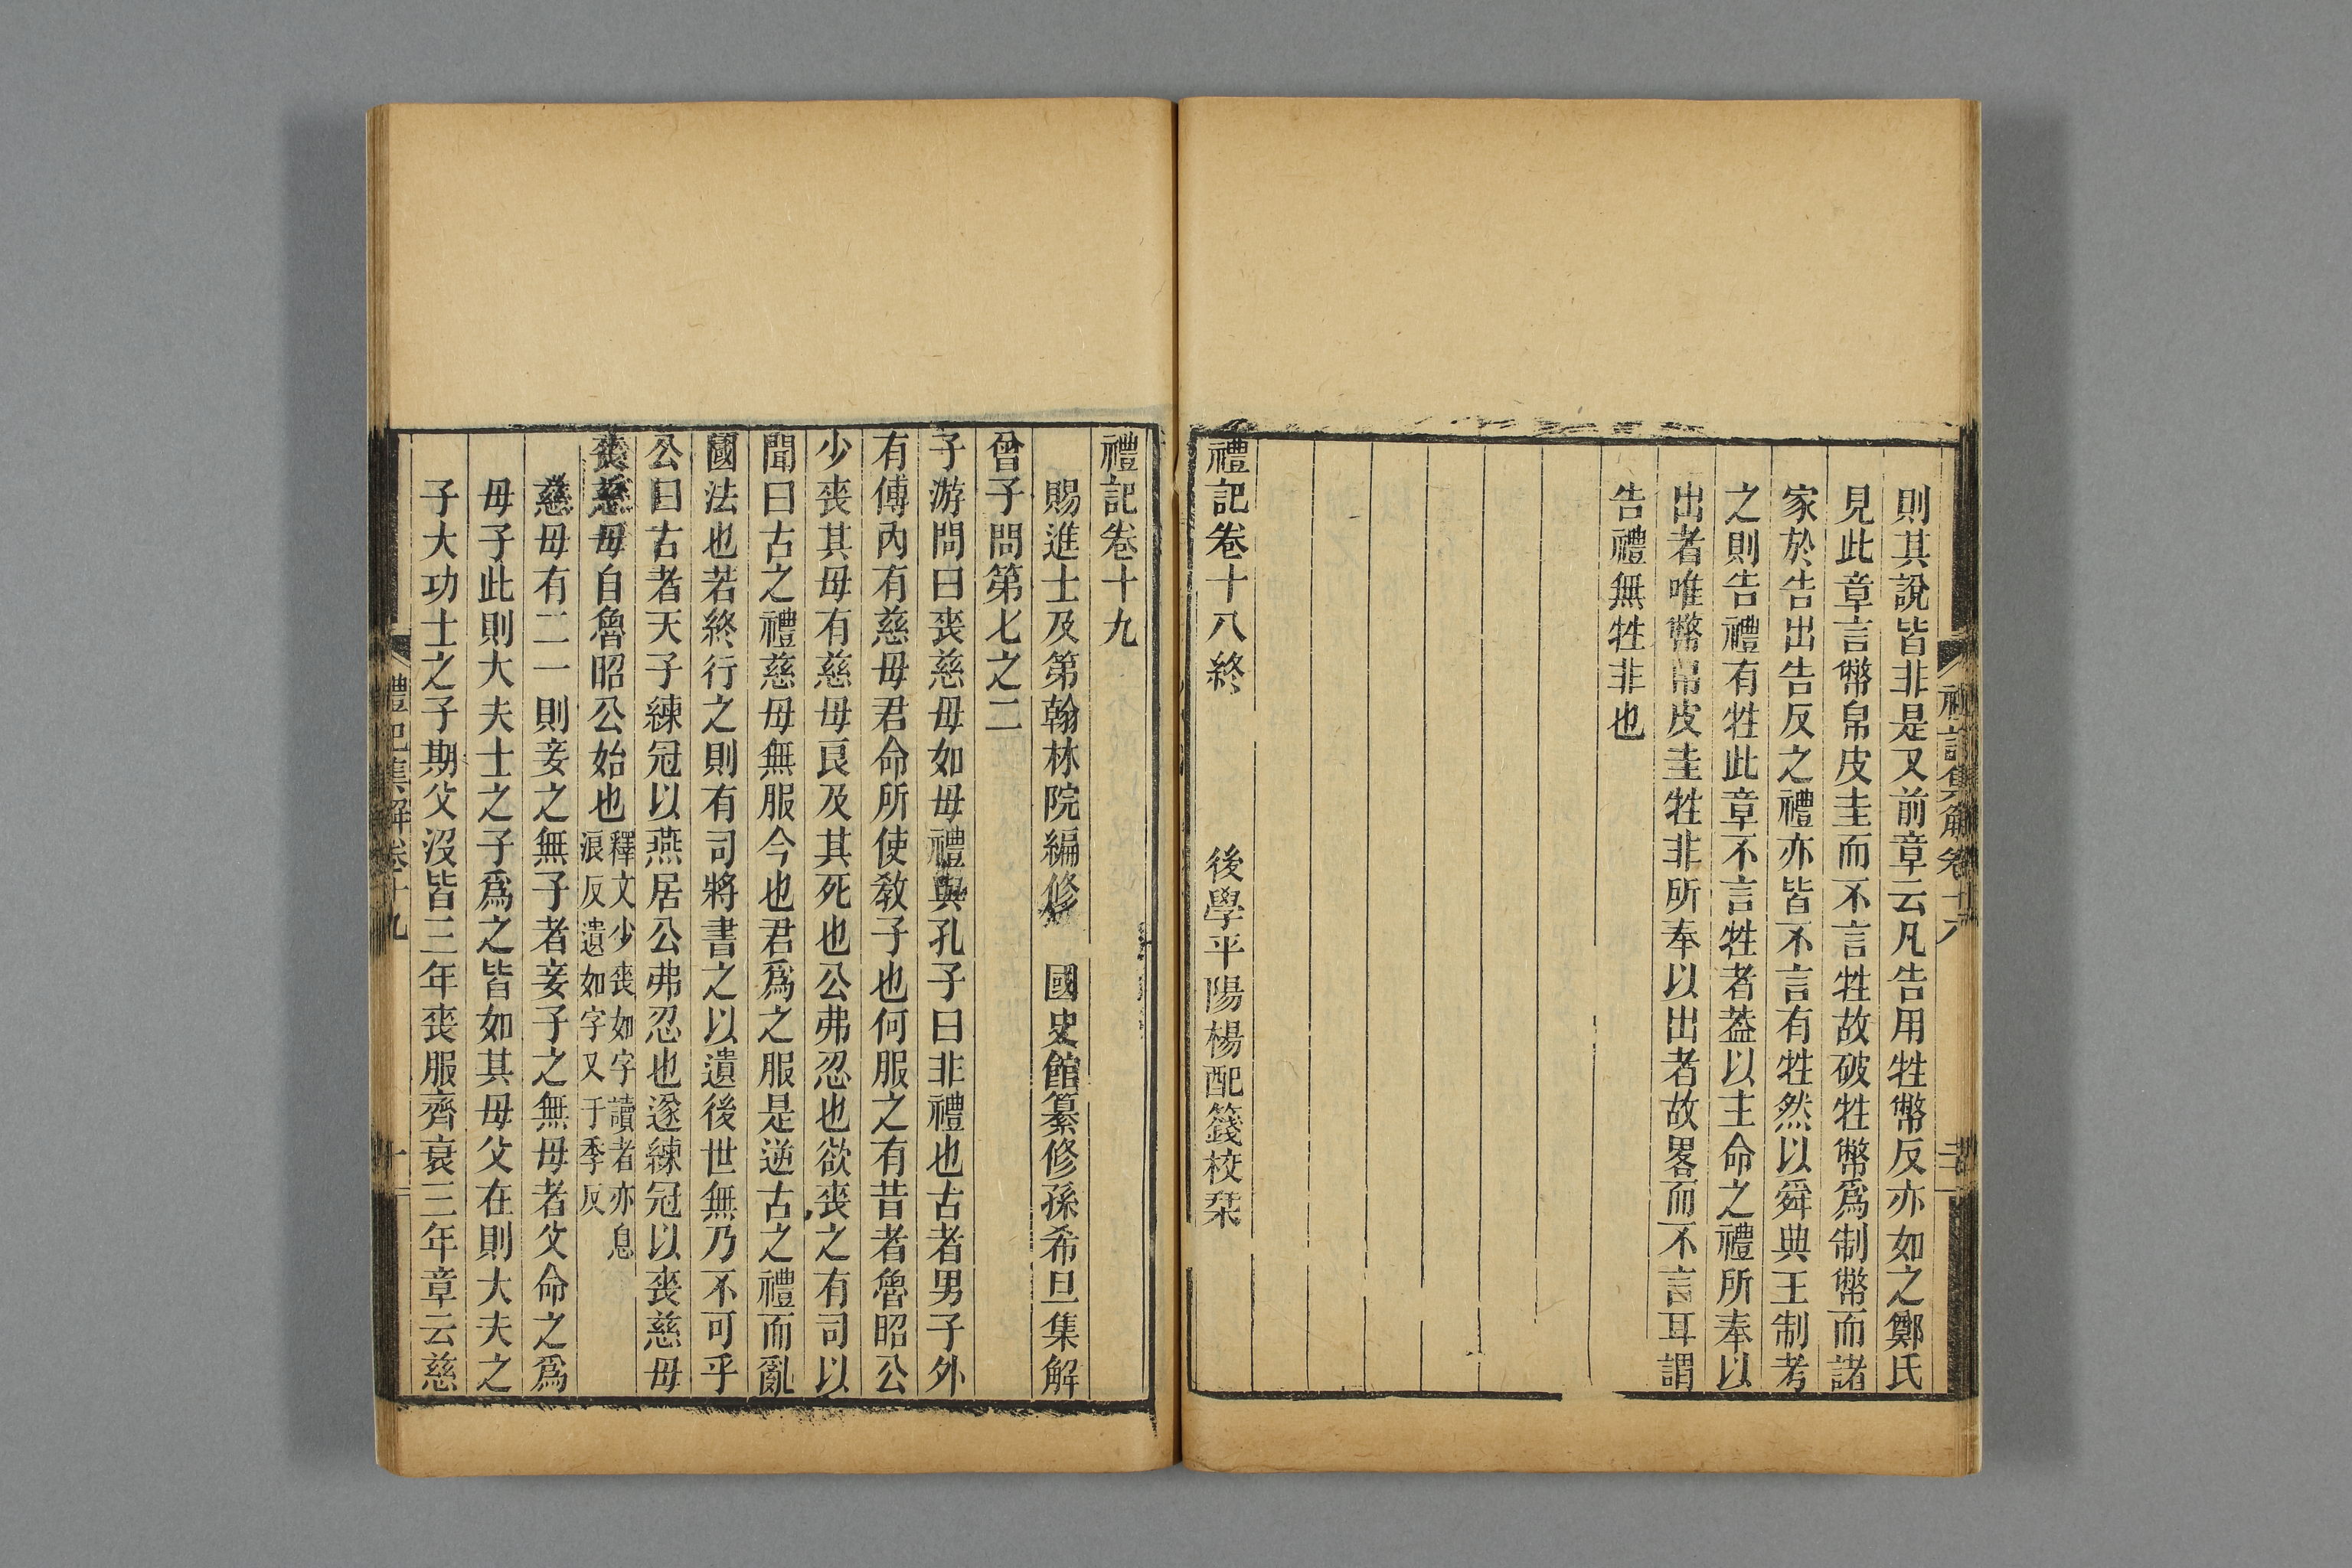 則其說皆非是又前章云凡告用牲幣反亦如之鄭氏
見此章言幣帛皮圭而不言牲故破牲幣爲制幣而諸
家於告出告反之禮亦皆不言有牲然以舜典王制考
之則告禮有牲此章不言牲者葢以主命之禮所奉以
出者唯幣帛皮圭牲非所奉以出者故畧而不言耳謂
告禮無牲非也
禮記卷十八終　後學平陽楊配籛校栞
禮記集解卷十八
禮記卷十九
賜進士及第翰林院編修　國史館纂修孫希旦集解
曾子問第七之二
子游問曰喪慈母如母禮與孔子曰非禮也古者男子外
有傅內有慈母君命所使敎子也何服之有昔者魯昭公
少喪其母有慈母良及其死也公弗忍也欲喪之有司以
聞曰古之禮慈母無服今也君爲之服是逆古之禮而亂
國法也若終行之則有司將書之以遺後世無乃不可乎
公曰古者天子練冠以燕居公弗忍也遂練冠以喪慈母
喪慈母自魯昭公始也
釋文少喪如字讀者亦息
浪反遺如字又于季反
慈母有二一則妾之無子者妾子之無母者父命之爲
母子此則大夫士之子爲之皆如其母父在則大夫之
子大功士之子期父沒皆三年喪服齊衰三年章云慈
禮記集解卷十九
一